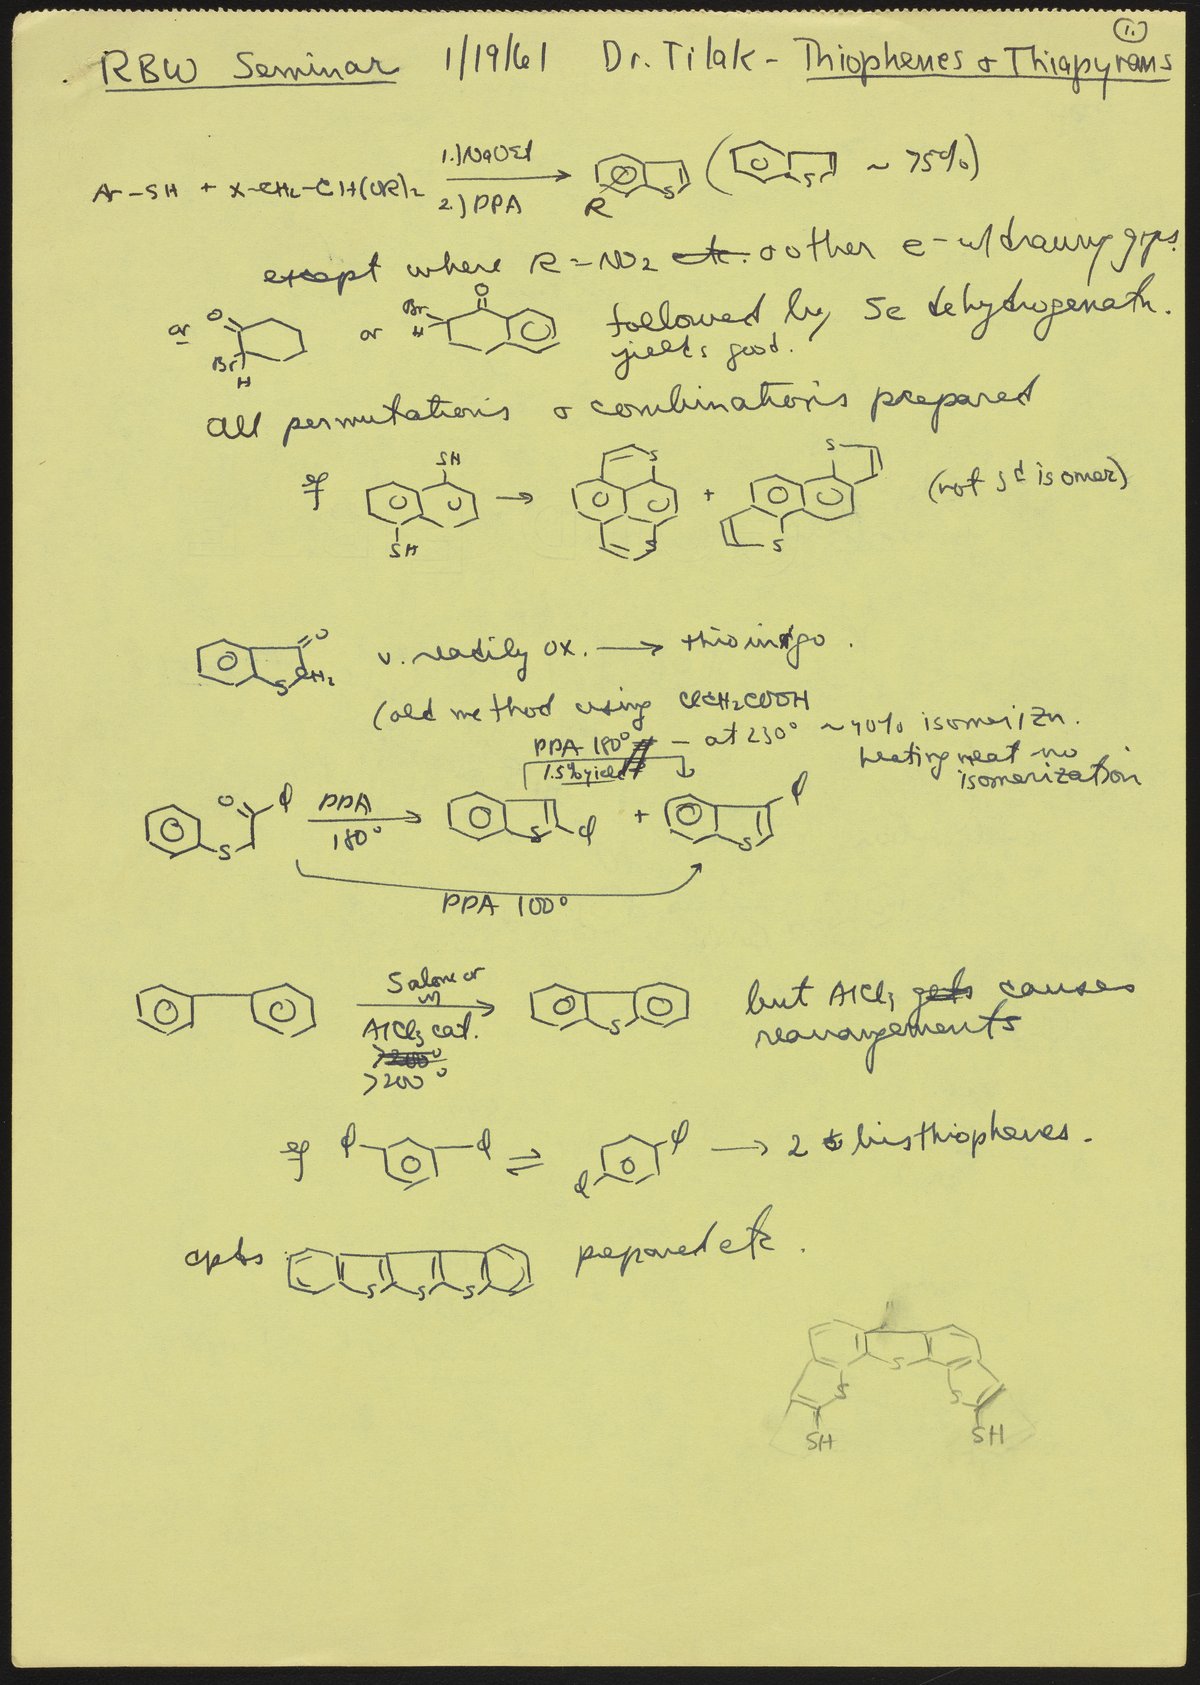 1.
RBW Seminar 1/19/61 Dr. Tilak - Thiophenes & Thiapyrans
Ar-SH + X-CH2-CH(OR)2 1.) NaOEt 2.) PPA R S ( S ~ 75%)
except where R = NO2 etc. & other e- w/drawing grps.
or O Br H or Br H O followed by Se dehydrogenatn.
yields good.
all permutations & combinations prepared
eg SH SH → S S + S S (not 3d isomer)
O S CH2 v. readily ox. → thioindigo.
(old method using ClCH2COOH
PPA 180° - at 230° ~ 40% isomerizn.
1.5% yield heating neat no
isomerization
O φ S PPA 180° S φ + φ S
PPA 100°
S alone or
w/
AlCl3 cat.
>200°
>200°
S but AlCl3 gets causes
rearrangements
eg φ φ ⇌ φ φ → 2 bisthiophenes.
cpds S S S prepared etc.
S S S
SH SH